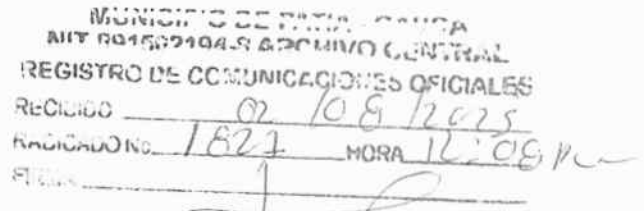 MUNICIPIO DE PATIA - CAUCA
NIT 891502194-8 ARCHIVO CENTRAL
REGISTRO DE COMUNICACIONES OFICIALES
RECIBIDO 02/08/2025
RADICADO No. 1827 HORA 12:08 Pm
FIRMA